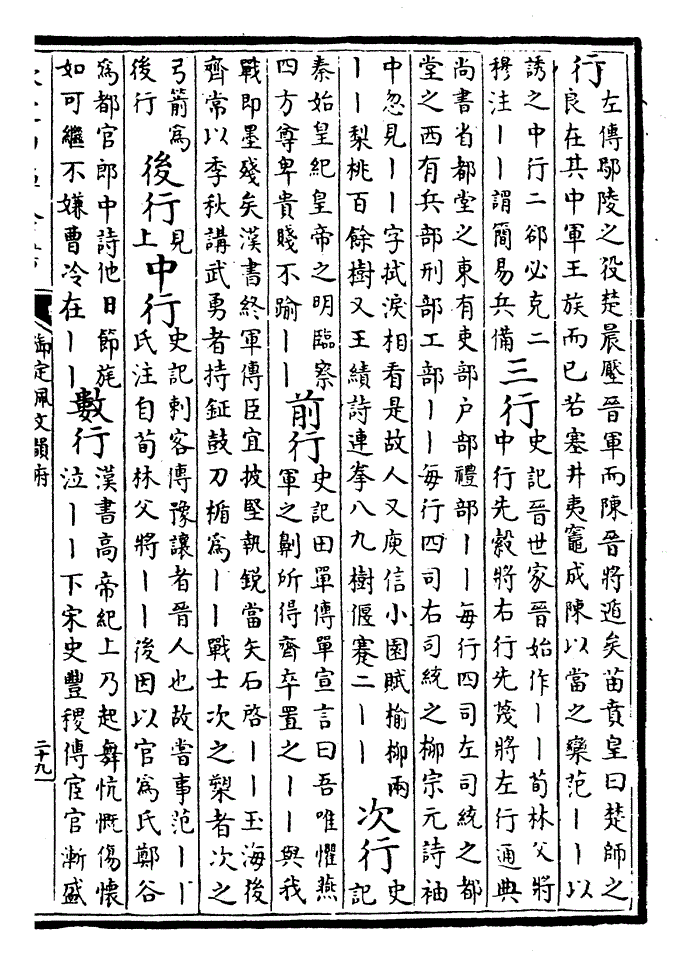 行
左傳鄢陵之役楚晨壓晉軍而陳晉將遁矣苗賁皇曰楚師之
良在其中軍王族而已若塞井夷竈成陳以當之欒范丨丨以
誘之中行二郤必克二
穆注丨丨謂簡易兵備
三行
史記晉世家晉始作丨丨荀林父將
中行先縠將右行先蔑將左行通典
尚書省都堂之東有吏部户部禮部丨丨每行四司左司統之都
堂之西有兵部刑部工部丨丨每行四司右司統之柳宗元詩袖
中忽見丨丨字拭淚相看是故人又庾信小園賦榆柳兩
丨丨梨桃百餘樹又王績詩連拳八九樹偃蹇二丨丨
次行
史
記
秦始皇紀皇帝之明臨察
四方尊卑貴賤不踰丨丨
前行
史記田單傳單宣言曰吾唯懼燕
軍之劓所得齊卒置之丨丨與我
戰即墨殘矣漢書終軍傳臣宜披堅執銳當矢石啓丨丨玉海後
齊常以季秋講武勇者持鉦鼓刀楯為丨丨戰士次之槊者次之
弓箭為
後行
後行
見
上
中行
史記刺客傳豫讓者晉人也故嘗事范丨丨
氏注自荀林父將丨丨後因以官為氏鄭谷
為都官郎中詩他日節旄
如可繼不嫌曹冷在丨丨
數行
漢書高帝紀上乃起舞忼慨傷懷
泣丨丨下宋史豐稷傳宦官漸盛
御定佩文韻府
二十九